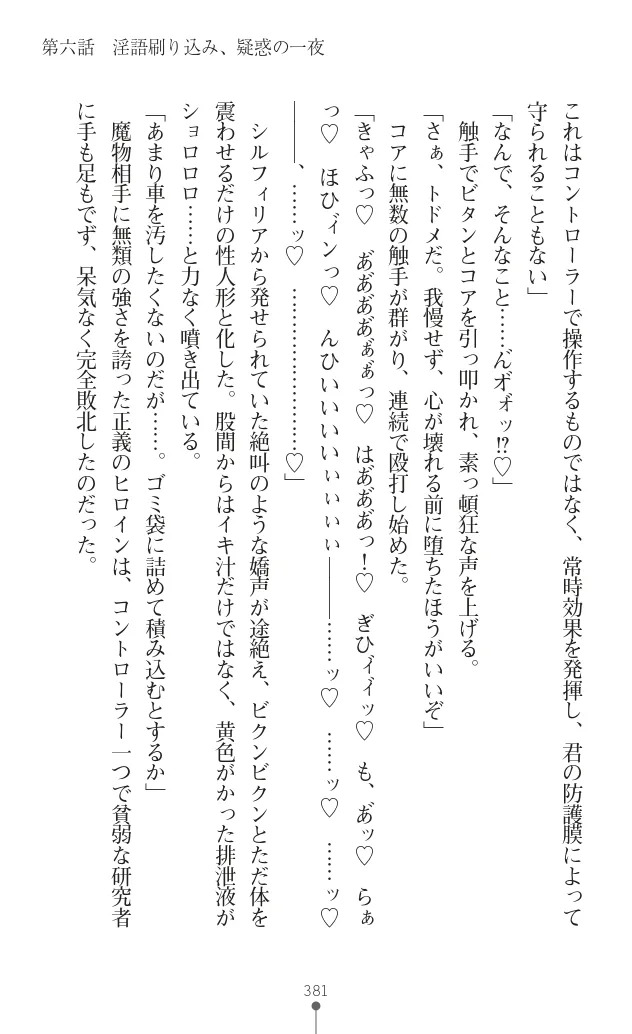 第六話　淫語刷り込み、疑惑の一夜
これはコントローラーで操作するものではなく、常時効果を発揮し、君の防護膜によって
守られることもない」
「なんで、そんなこと……ん゛オ゛ォ゛ッ!?♡」
触手でビタンとコアを引っ叩かれ、素っ頓狂な声を上げる。
「さぁ、トドメだ。我慢せず、心が壊れる前に堕ちたほうがいいぞ」
コアに無数の触手が群がり、連続で殴打し始めた。
「きゃふっ♡　あ゛あ゛あ゛あ゛ぁ゛ぁ゛っ♡　はあ゛あ゛あ゛っ！♡　ぎひィ゛ィ゛ッ♡　も、あ゛ッ♡　らぁ
っ♡　ほひィ゛ィンっ♡　んひいいいいいぃぃぃぃ――……ッ♡　……ッ♡　……ッ♡
――、……ッ♡　…………………♡」
シルフィリアから発せられていた絶叫のような嬌声が途絶え、ビクンビクンとただ体を
震わせるだけの性人形と化した。股間からはイキ汁だけではなく、黄色がかった排泄液が
ショロロロ……と力なく噴き出ている。
「あまり車を汚したくないのだが……。ゴミ袋に詰めて積み込むとするか」
魔物相手に無類の強さを誇った正義のヒロインは、コントローラー一つで貧弱な研究者
に手も足もでず、呆気なく完全敗北したのだった。
381